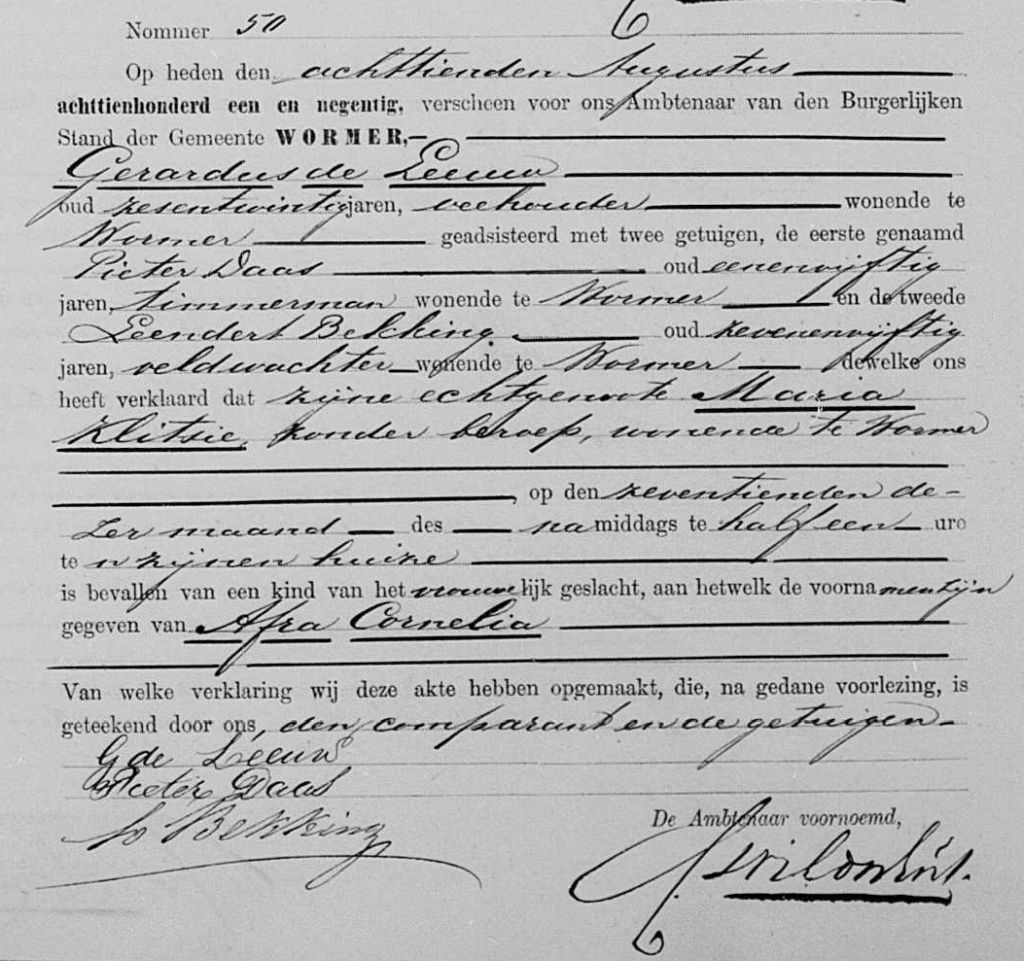 Nommer 50
Op heden den achttienden Augustus
achttienhonderd een en negentig, verscheen voor ons Ambtenaar van den Burgerlijken
Stand der Gemeente WORMER,
Gerardus de Leeuw
oud zesentwintig jaren, veehouder wonende te
Wormer geadsisteerd met twee getuigen, de eerste genaamd
Pieter Daas oud eenenvijftig
jaren, timmerman wonende te Wormer en de tweede
Leendert Bekking oud zevenenvijftig
jaren, veldwachter wonende te Wormer dewelke ons
heeft verklaard dat zijne echtgenoote Maria
Klitsie, zonder beroep, wonende te Wormer
, op den zeventienden de-
zer maand des namiddags te half een ure
te n zijnen huize
is bevallen van een kind van het vrouwelijk geslacht, aan hetwelk de voornamen zijn
gegeven van Afra Cornelia
Van welke verklaring wij deze akte hebben opgemaakt, die, na gedane voorlezing, is
geteekend door ons, den comparant en de getuigen
G de Leeuw
Pieter Daas
L Bekking
De Ambtenaar voornoemd,